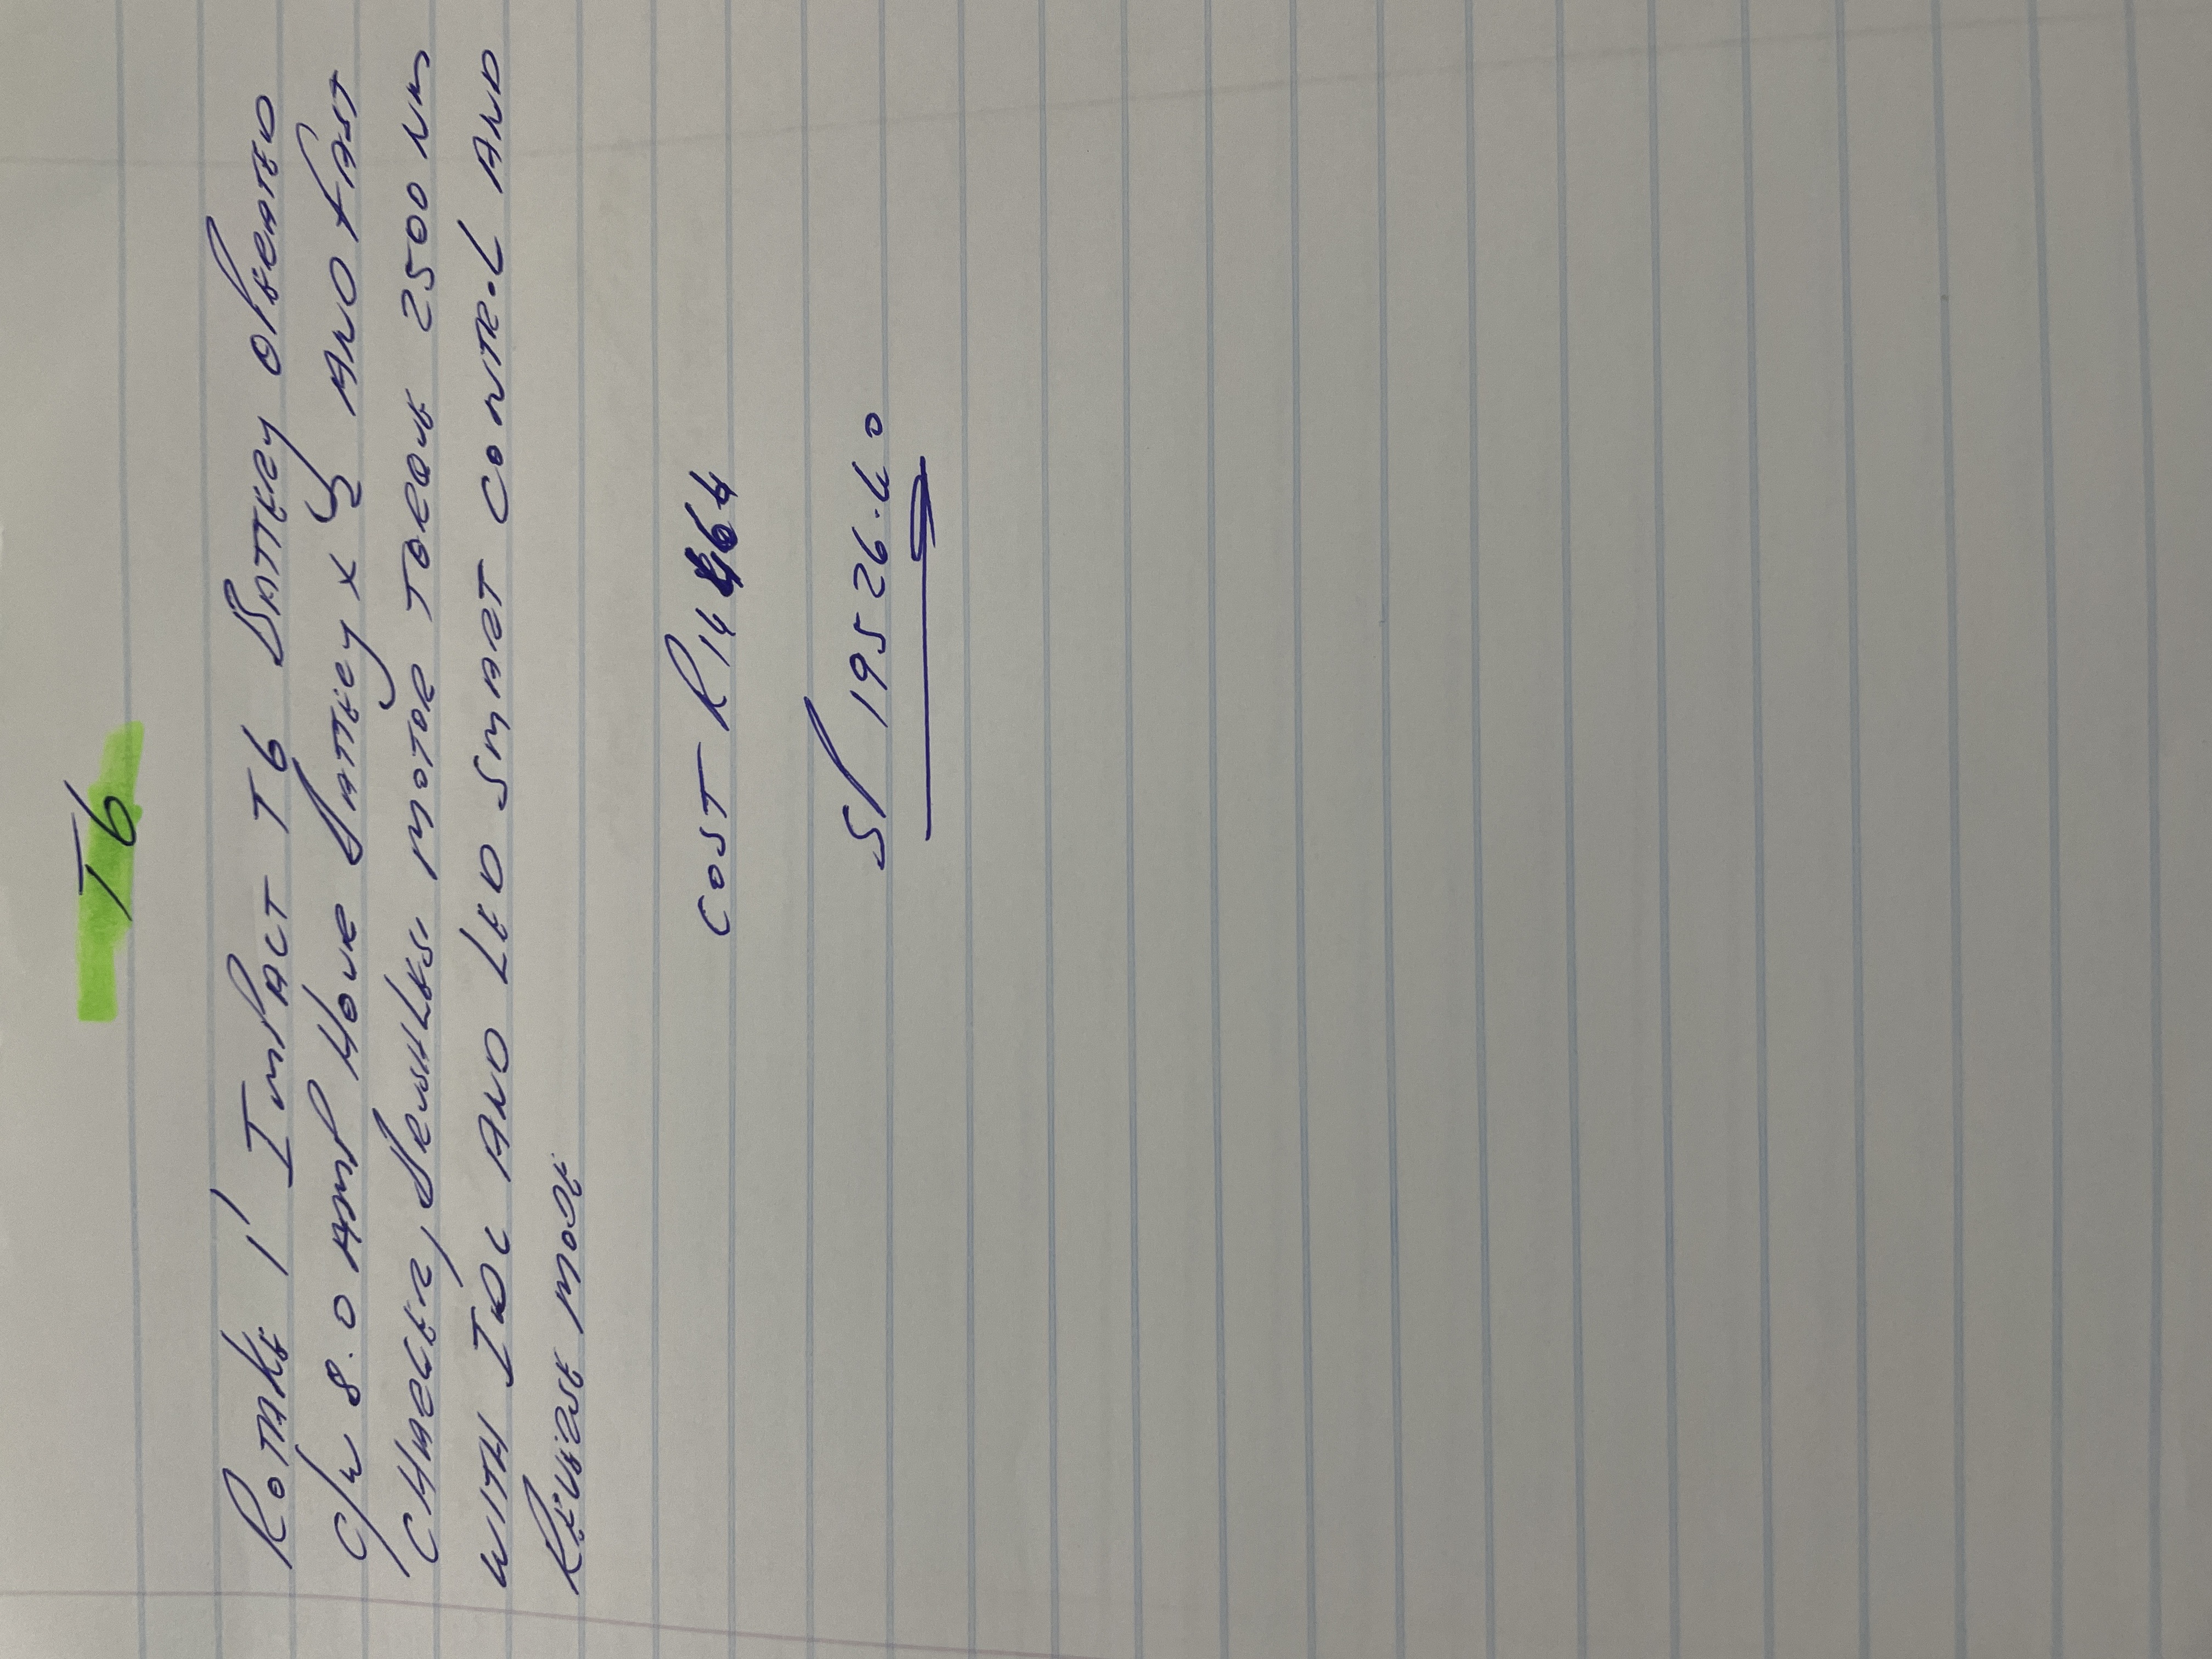 T6
ROTAKE 1' IMPACT T6 BATTERY OPERATED
C/W 8.0 AMP HOUR BATTERY x 2 AND FAST
CHARGER, BRUSHLESS MOTOR TORQUE 2500 NM
WITH AND LED SMART CONTROL AND
REVERSE MODE
COST R14464
SP 19526.40